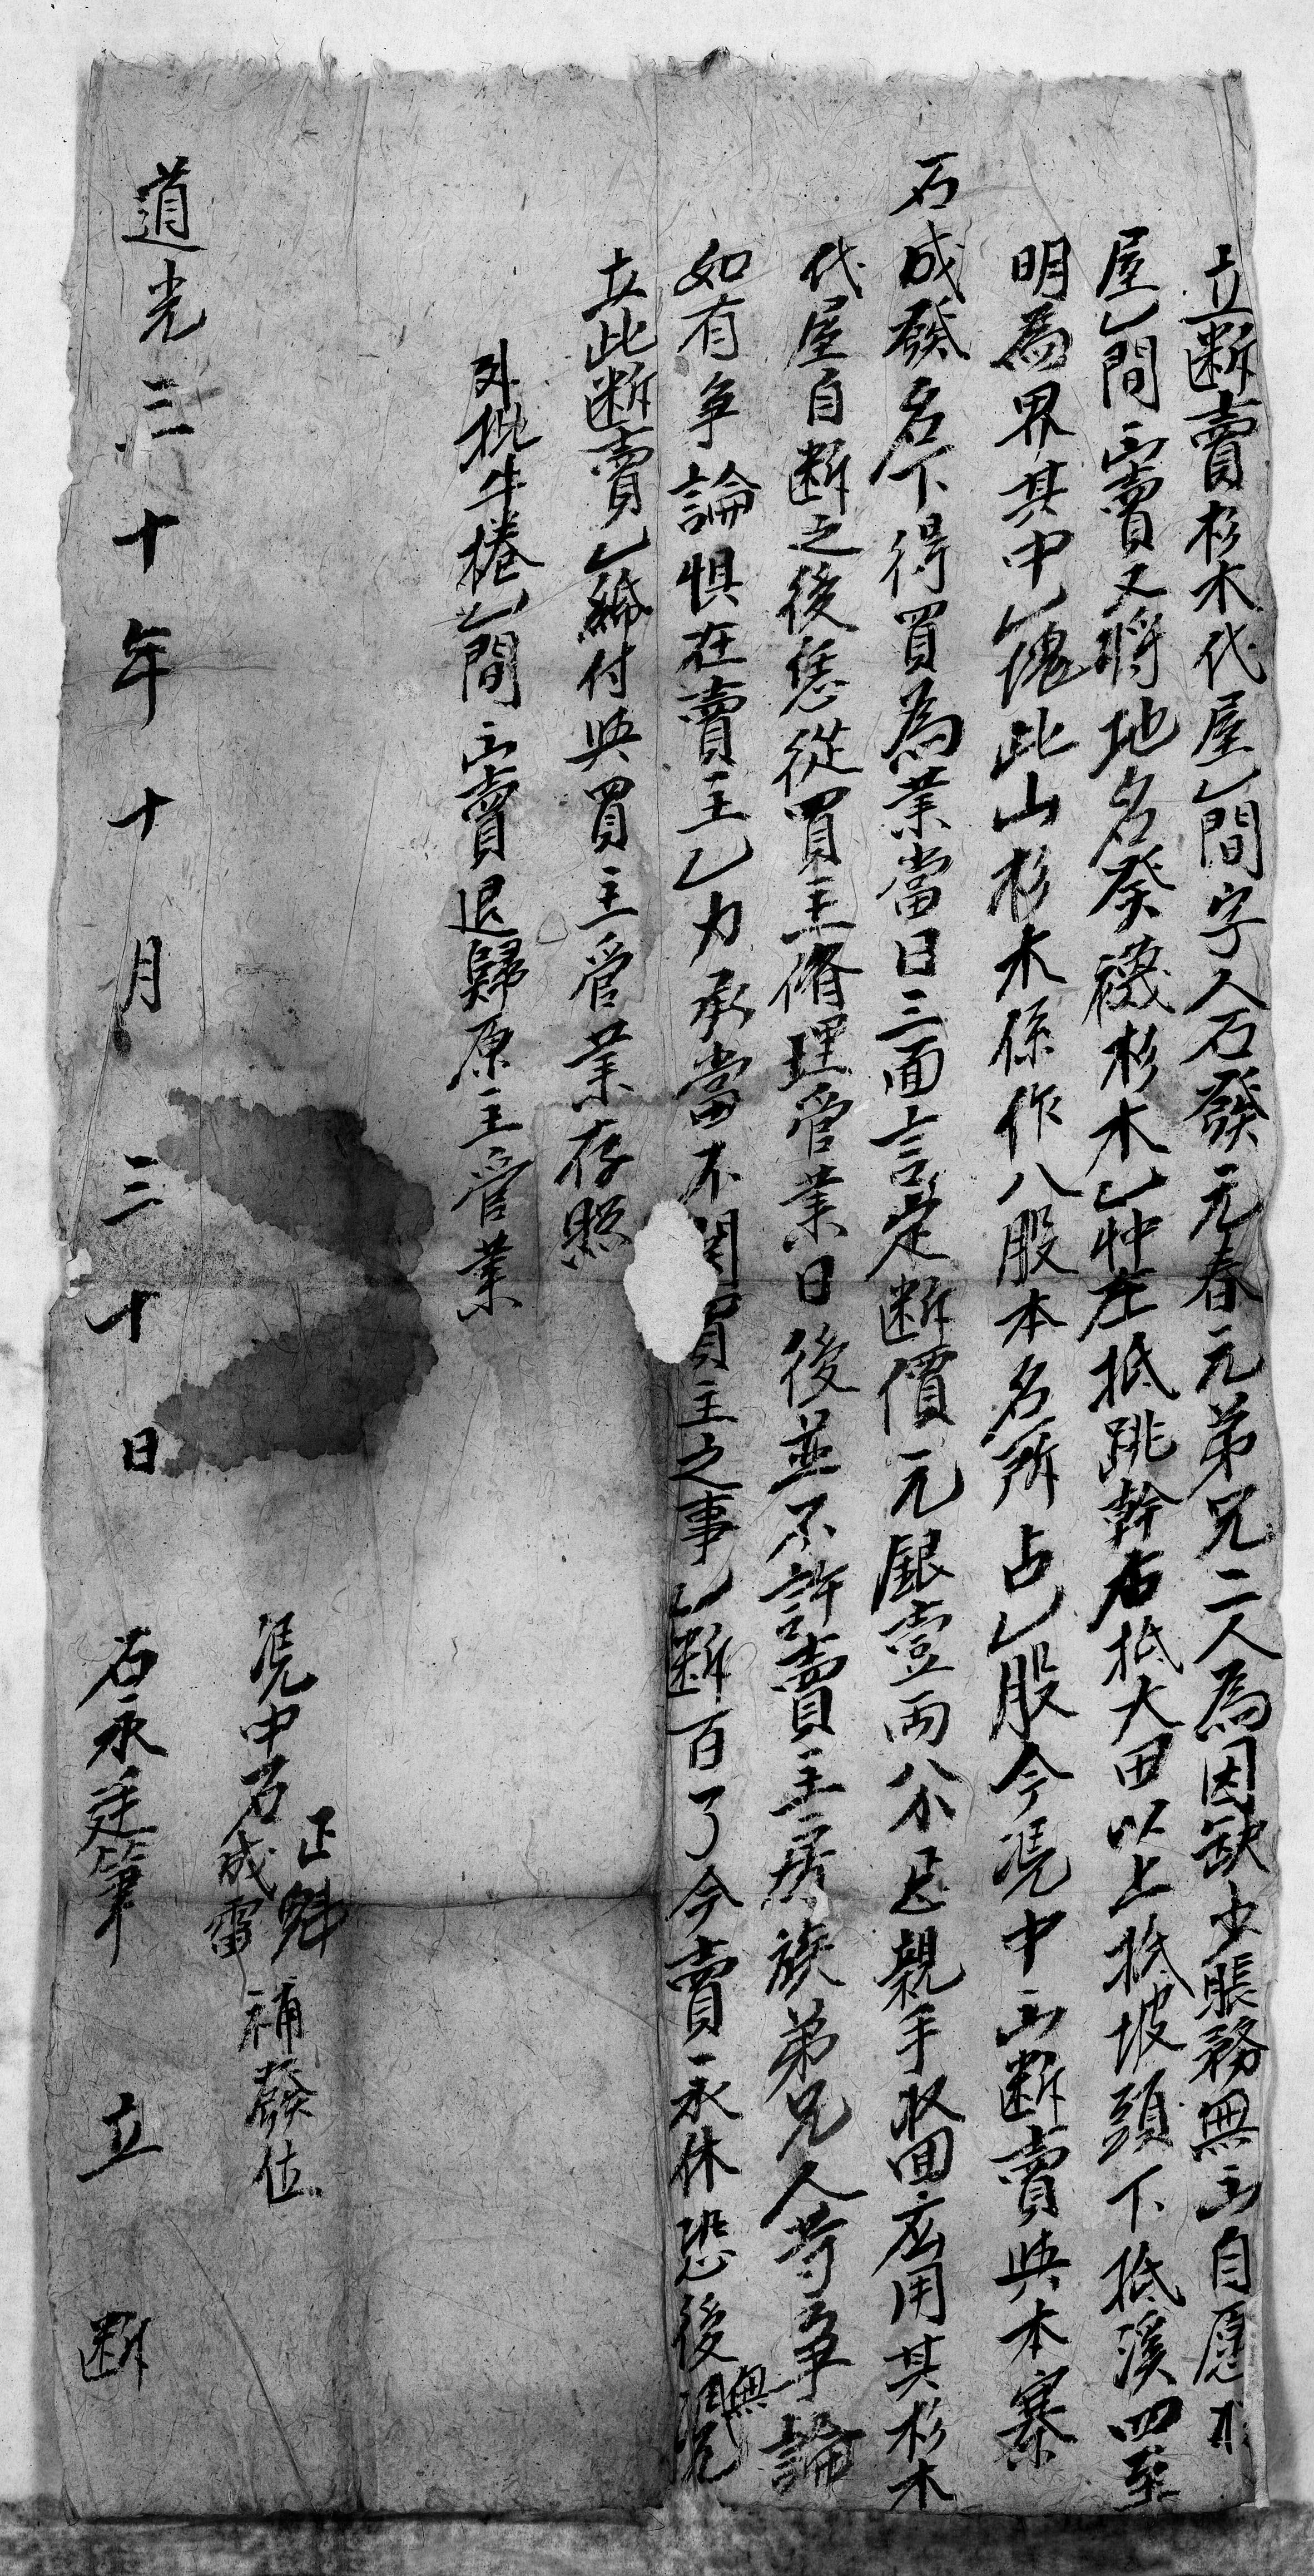 立断賣杉木代屋乙間字人石發元春元弟兄二人為因缺少賬務無出自愿將
屋乙間出賣又將地名癸襪杉木乙冲左抵跳幹右抵大田以上抵坡頭下抵溪四至
明為界其中乙塊此山杉木係作八股本名所占乙股今凴中出断賣與本寨
石成發名下得買為業當日三面言定断價元銀壹兩八分正親手收回応用其杉木
代屋自断之後恁從買主脩理管業日後並不許賣主房族弟兄人等爭論
如有爭論惧在賣主乙力承當不関買主之事乙断百了今賣永休恐後無凴
立此断賣乙紙付與買主管業存照
外批牛棬乙間出賣退歸原主管業
凴中石成雷 正魁 補發位
道光三十年十月三十日 石永廷筆 立 断